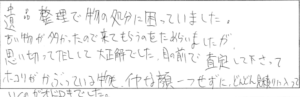 遺品整理で物の処分に困っていました。
古い物が多かったので来てもらうのをためらいましたが、
思い切ってだして大正解でした。目の前で査定して下さって
ホコリがかぶっている物も、イヤな顔一つせずに、どんどん見積りに入って